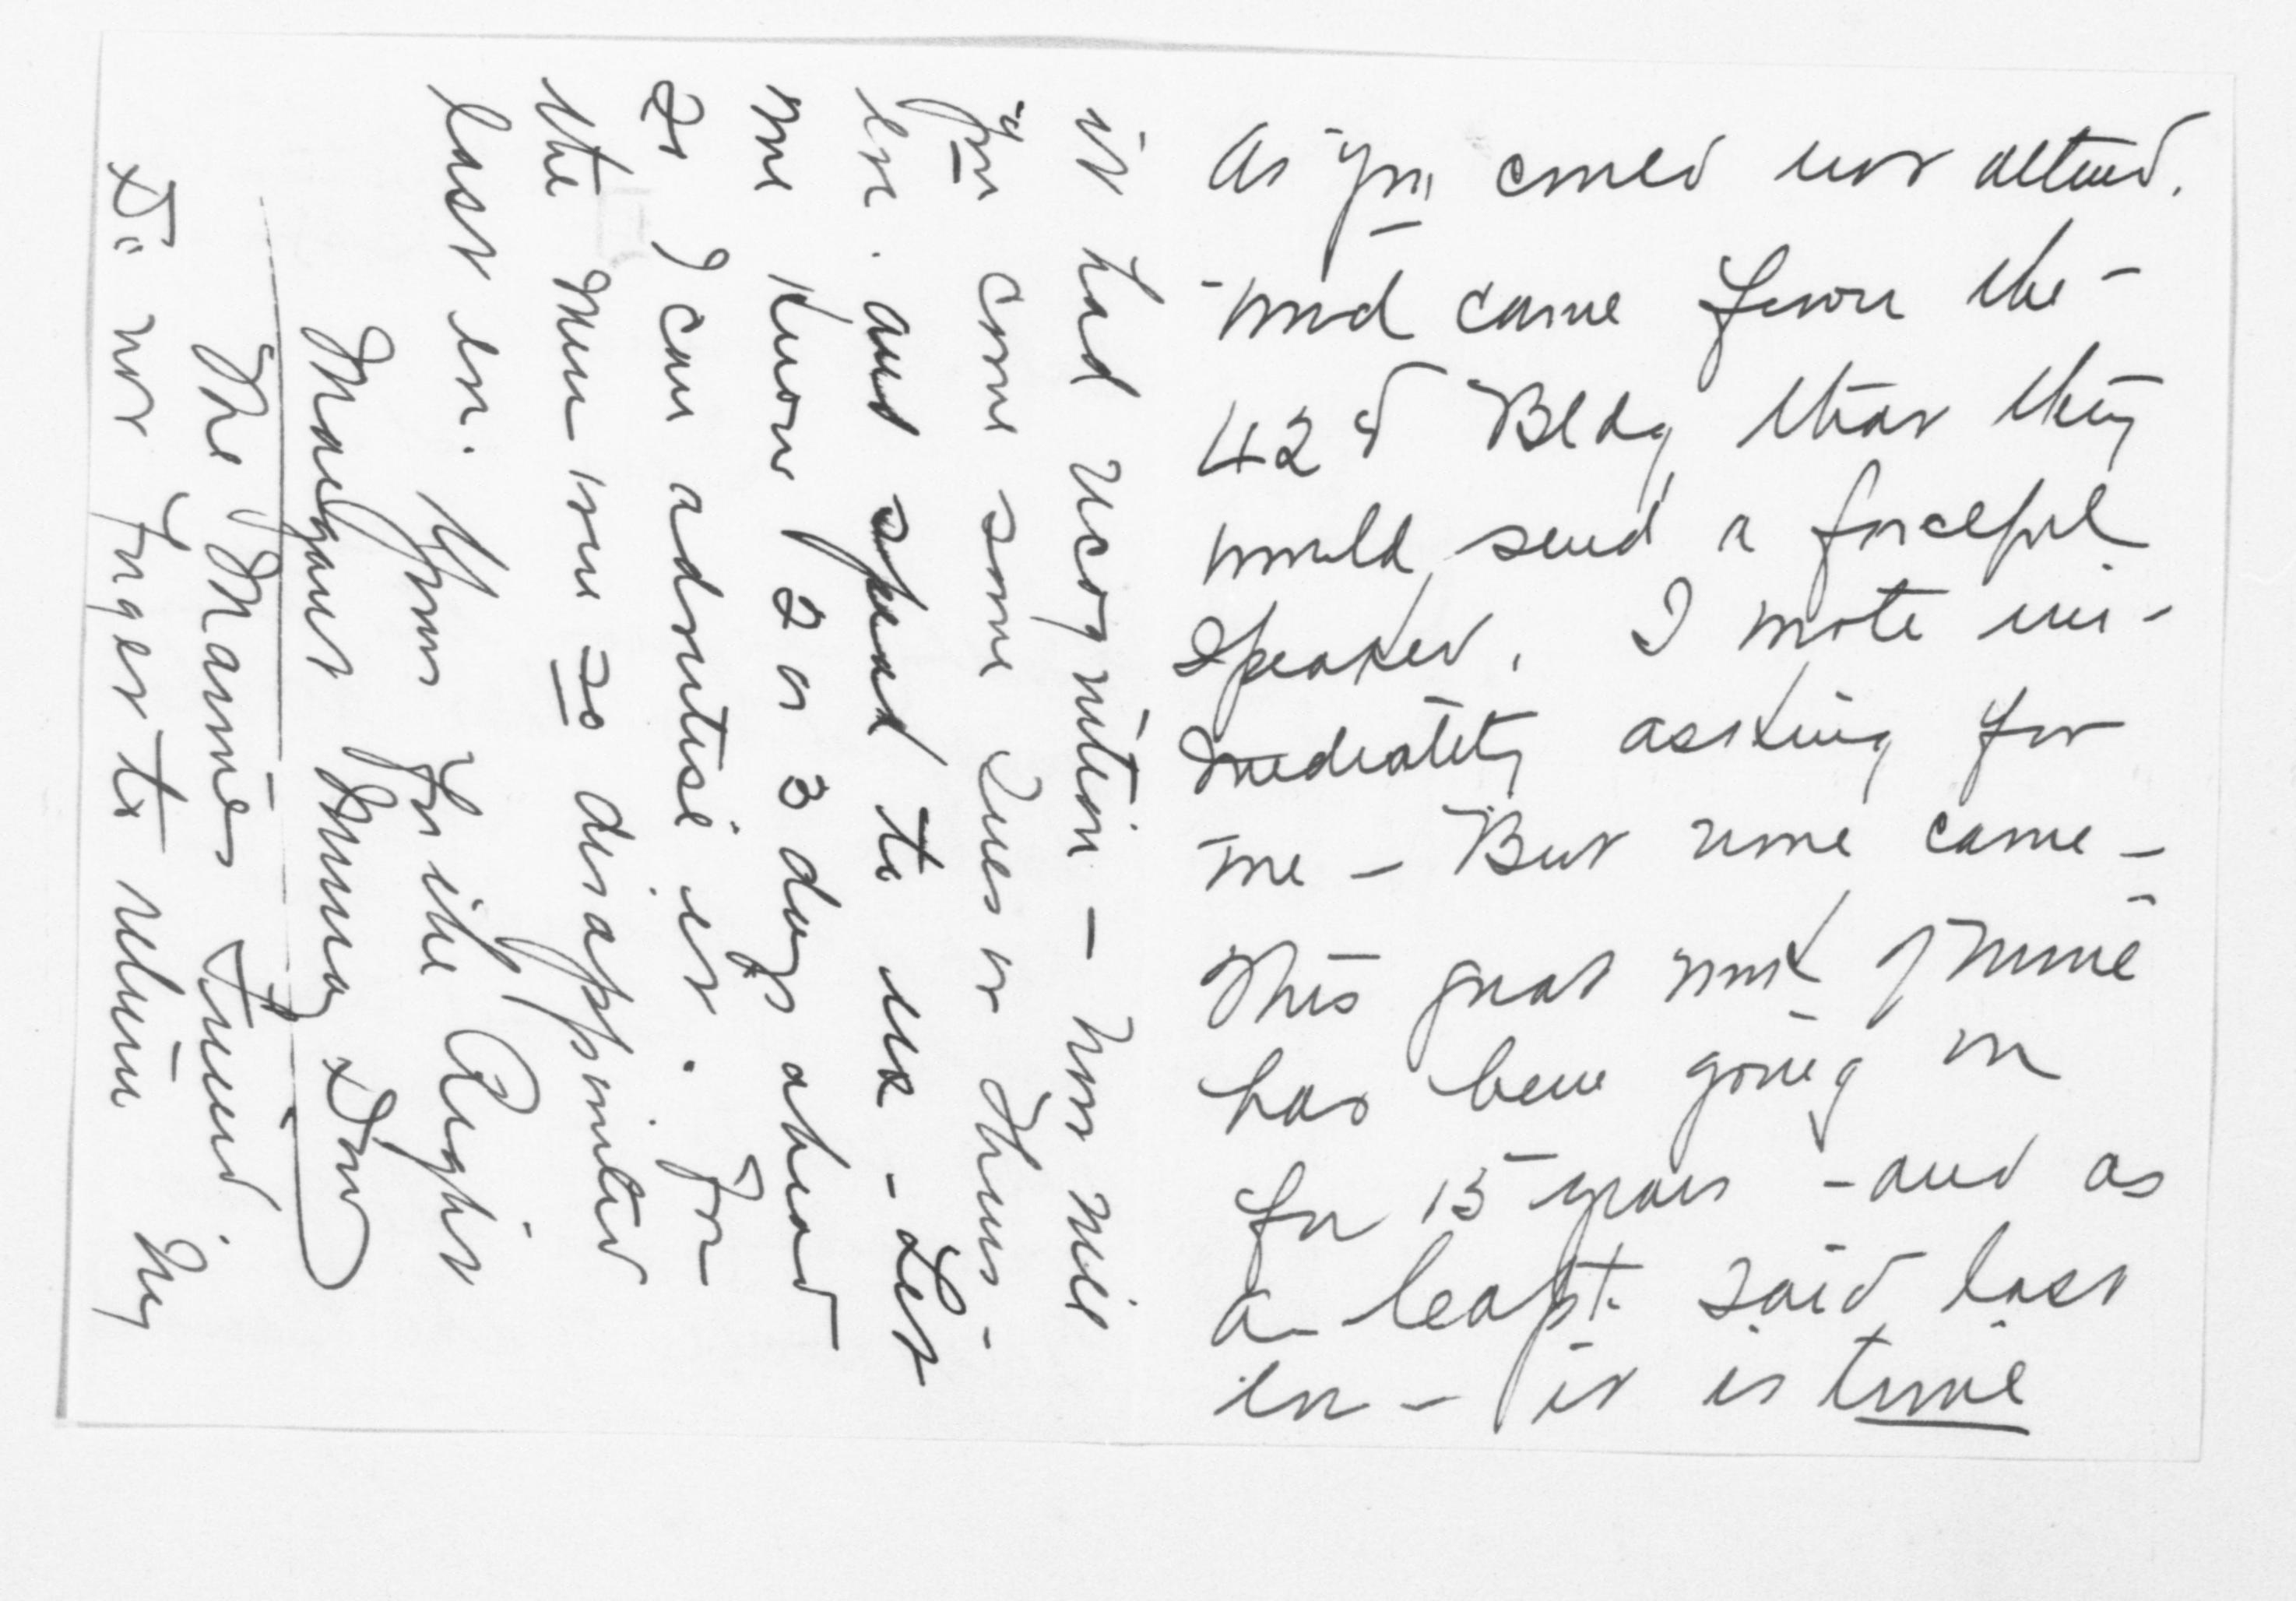 As you could not attend.
word came from the -
42d Bldg that they
would send a forceful
Speaker. I wrote im-
mediately asking for
one - But none came -
This great work of mine
has been going on
for 15 years - and as
a leaflet said last
eve - it is time
it had recognition - Now will
you come some Tues or Thurs-
eve. and speak to us - Let
me know 2 or 3 days ahead
so I can advertise it. For
the Men were so disappointed
last eve. Yours for the Right
Margaret Murray Dow
The Marines Friend.
Do not forget to return my